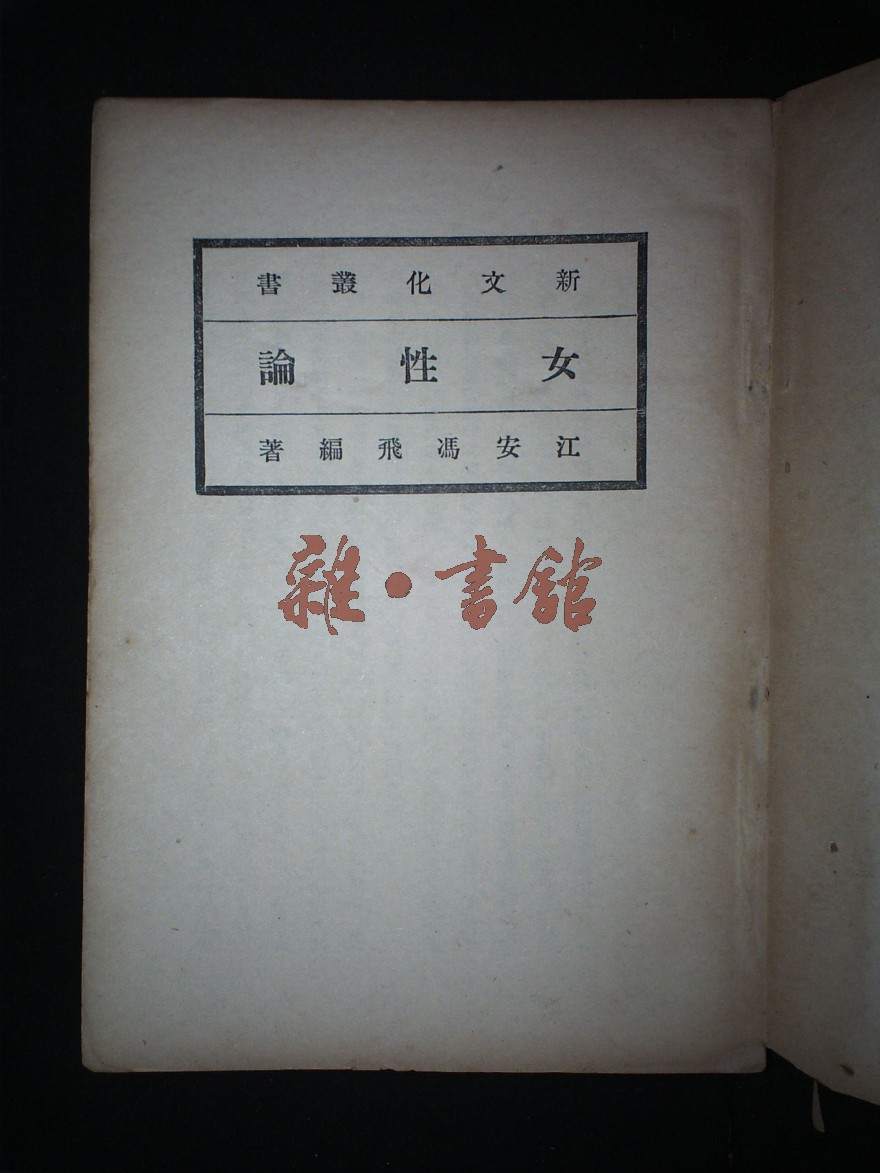 新文化叢書
女性論
江安馮飛編著
雜·書館